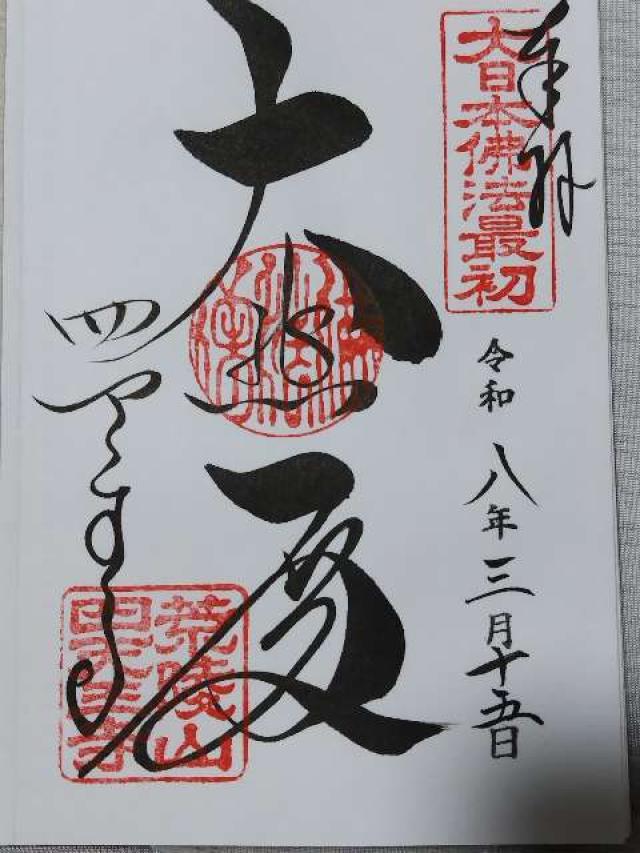 奉拝
大日本佛法最初
令和八年三月十五日
大
四天王寺
荒陵山
四天王寺